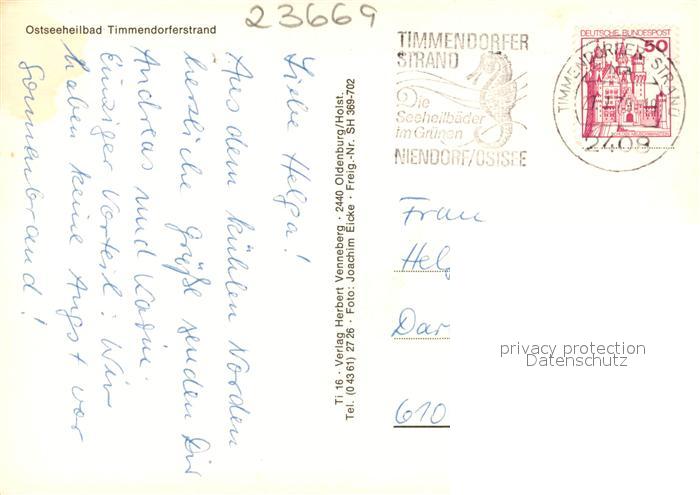 23669
Ostseeheilbad Timmendorferstrand
Liebe Helga!
Aus dem kühlen Norden
herzliche Grüße senden Dir
Andreas und Karin.
Einziger Vorteil: Wir
haben keine Angst vor
Sonnenbrand!
Ti 16 · Verlag Herbert Venneberg · 2440 Oldenburg/Holst.
Tel. (0 43 61) 27 26 · Foto: Joachim Eicke · Freig.-Nr. SH 369-702
TIMMENDORFER
STRAND
Die
Seeheilbäder
im Grünen
NIENDORF/OSTSEE
DEUTSCHE BUNDESPOST
50
TIMMENDORFER STRAND
2408
Frau
Hel
Dar
610
privacy protection
Datenschutz